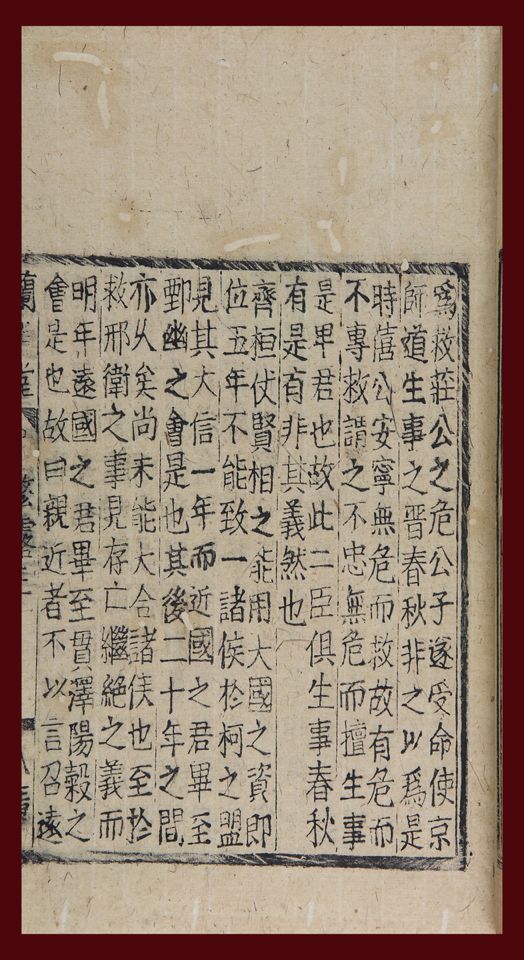 為救莊公之危公子遂受命使京
師道生事之晋春秋非之以為是
時僖公安寧無危而救故有危而
不專救謂之不忠無危而擅生事
是卑君也故此二臣俱生事春秋
有是有非其義然也
齊桓仗賢相之能用大國之資即
位五年不能致一諸侯於柯之盟
見其大信一年而近國之君畢至
鄄幽之會是也其後二十年之間
亦乆矣尚未能大合諸侯也至於
救邢衛之事見存亡繼絕之義而
明年遠國之君畢至貫澤陽榖之
會是也故曰親近者不以言召遠